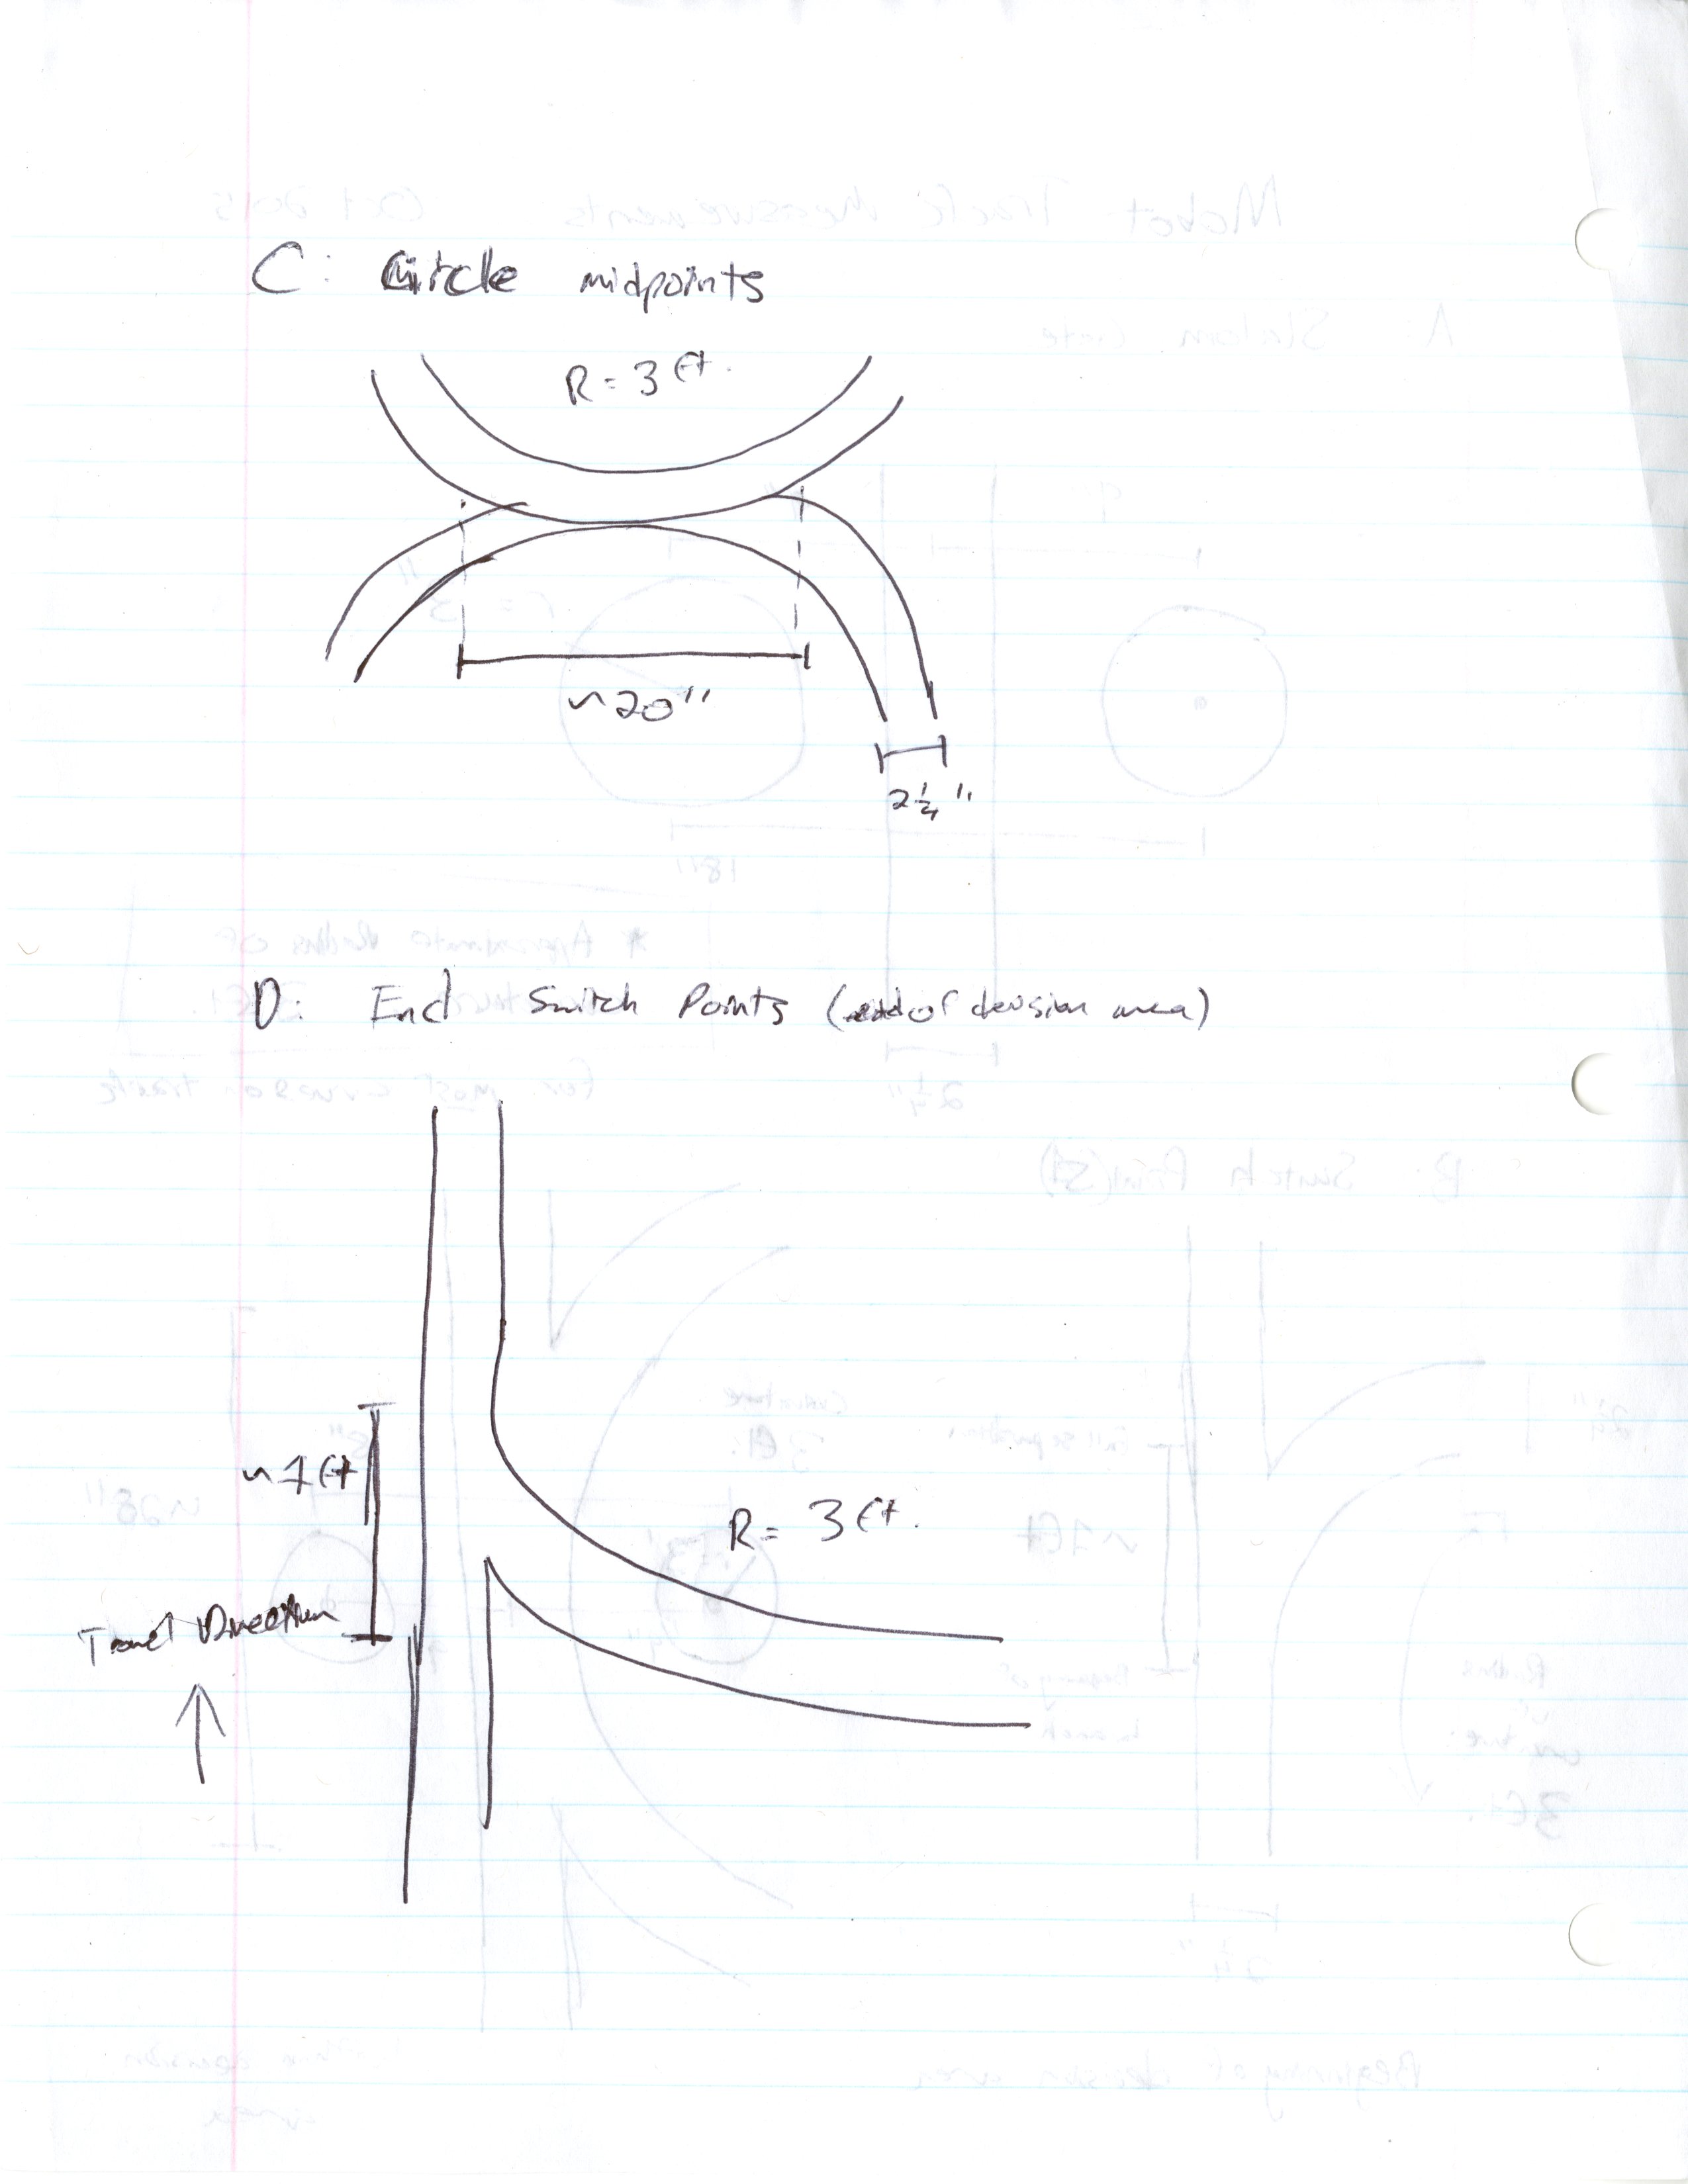 C: Circle midpoints
R = 3 ft.
~20"
2 1/4"
D: End Switch Points (end of decision area)
~1 ft
R = 3 ft.
Travel Direction